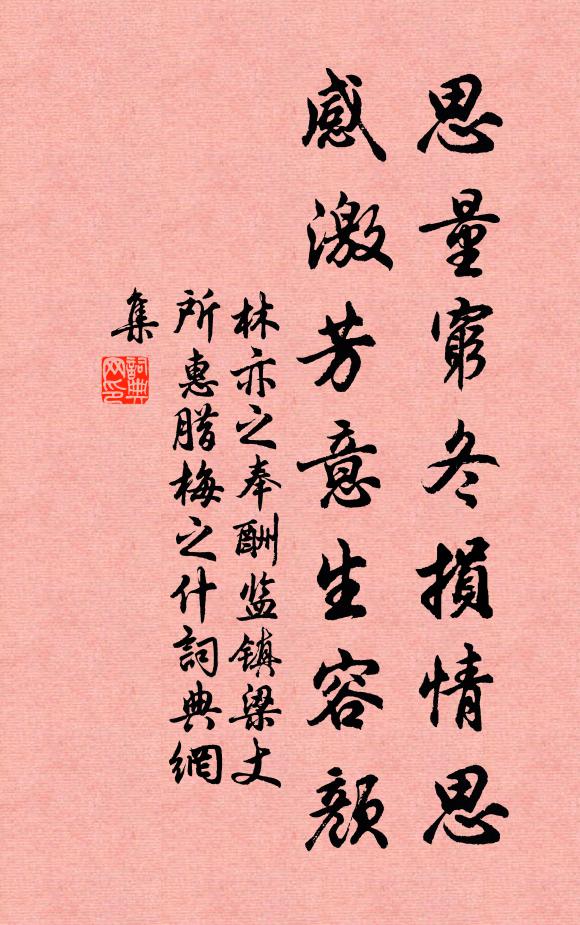 思量窮冬損情思
感激芳意生容顏
林亦之奉酬监镇梁丈
所惠腊梅之什詞典網
集
詞典
网印